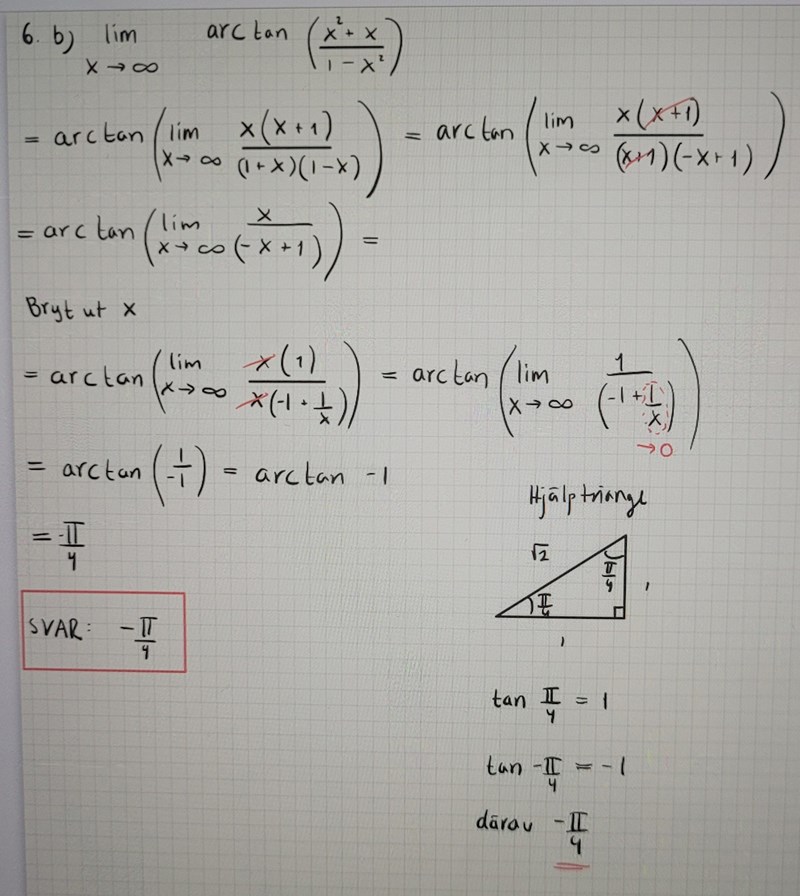 6. b) lim x→∞ arctan ((x² + x)/(1 - x²))
= arctan (lim x→∞ x(x+1)/((1+x)(1-x))) = arctan (lim x→∞ x(x+1)/((x+1)(-x+1)))
= arctan (lim x→∞ x/(-x+1)) =
Bryt ut x
= arctan (lim x→∞ x(1)/(x(-1+1/x))) = arctan (lim x→∞ 1/(-1+1/x))
→0
= arctan (1/-1) = arctan -1
= -π/4
SVAR: -π/4
Hjälptriangel
√2
π/4
π/4
1
1
tan π/4 = 1
tan -π/4 = -1
därav -π/4